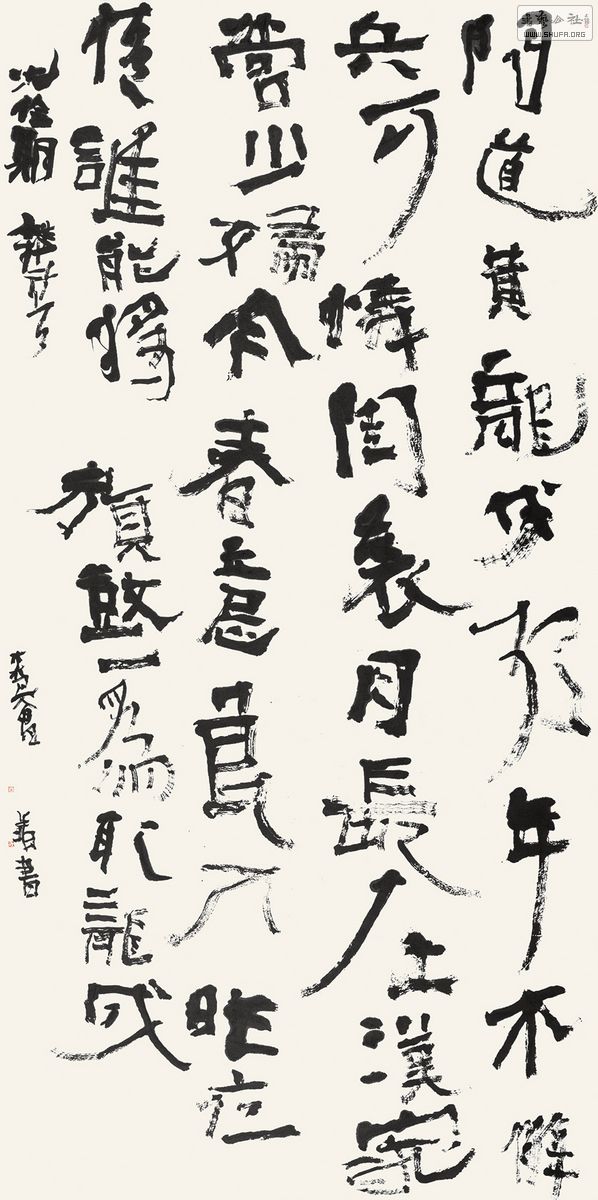 聞道黃龍戍頻年不解
兵可憐閨裏月長在漢家
營少婦今春意良人昨夜
情誰能將旗鼓一為取龍城
沈佺期 雜詩
書
WWW.SHUFA.ORG